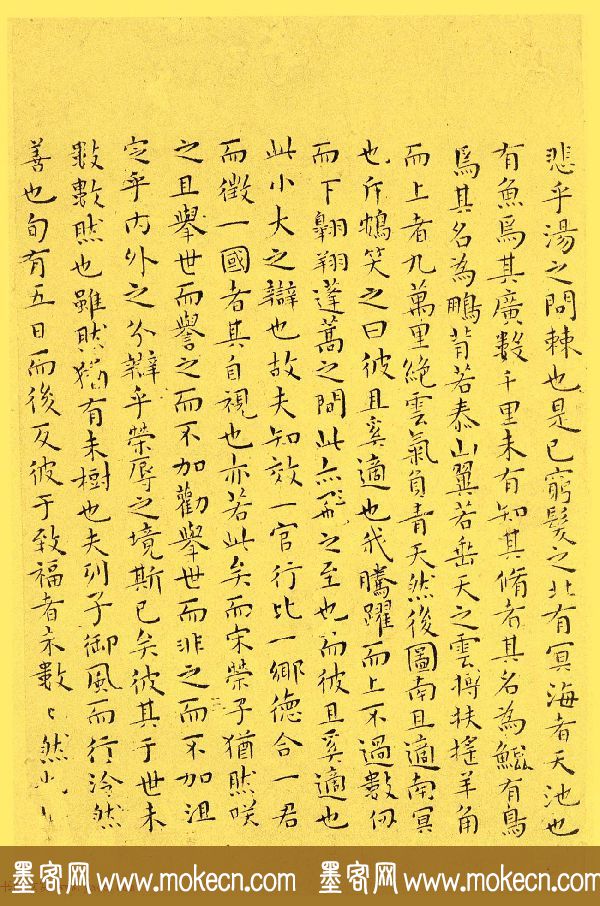 悲乎湯之問棘也是已窮髮之北有冥海者天池也
有魚焉其廣數千里未有知其脩者其名為鯤有鳥
焉其名為鵬背若泰山翼若垂天之雲摶扶搖羊角
而上者九萬里絕雲氣負青天然後圖南且適南冥
也斥鴳笑之曰彼且奚適也我騰躍而上不過數仞
而下翱翔蓬蒿之間此亦飛之至也而彼且奚適也
此小大之辯也故夫知效一官行比一鄉德合一君
而徵一國者其自視也亦若此矣而宋榮子猶然咲
之且舉世而譽之而不加勸舉世而非之而不加沮
定乎內外之分辯乎榮辱之境斯已矣彼其于世未
數數然也雖然猶有未樹也夫列子御風而行泠然
善也旬有五日而後反彼于致福者未數〻然也
墨客网 www.mokecn.com 墨客网 www.mokecn.com